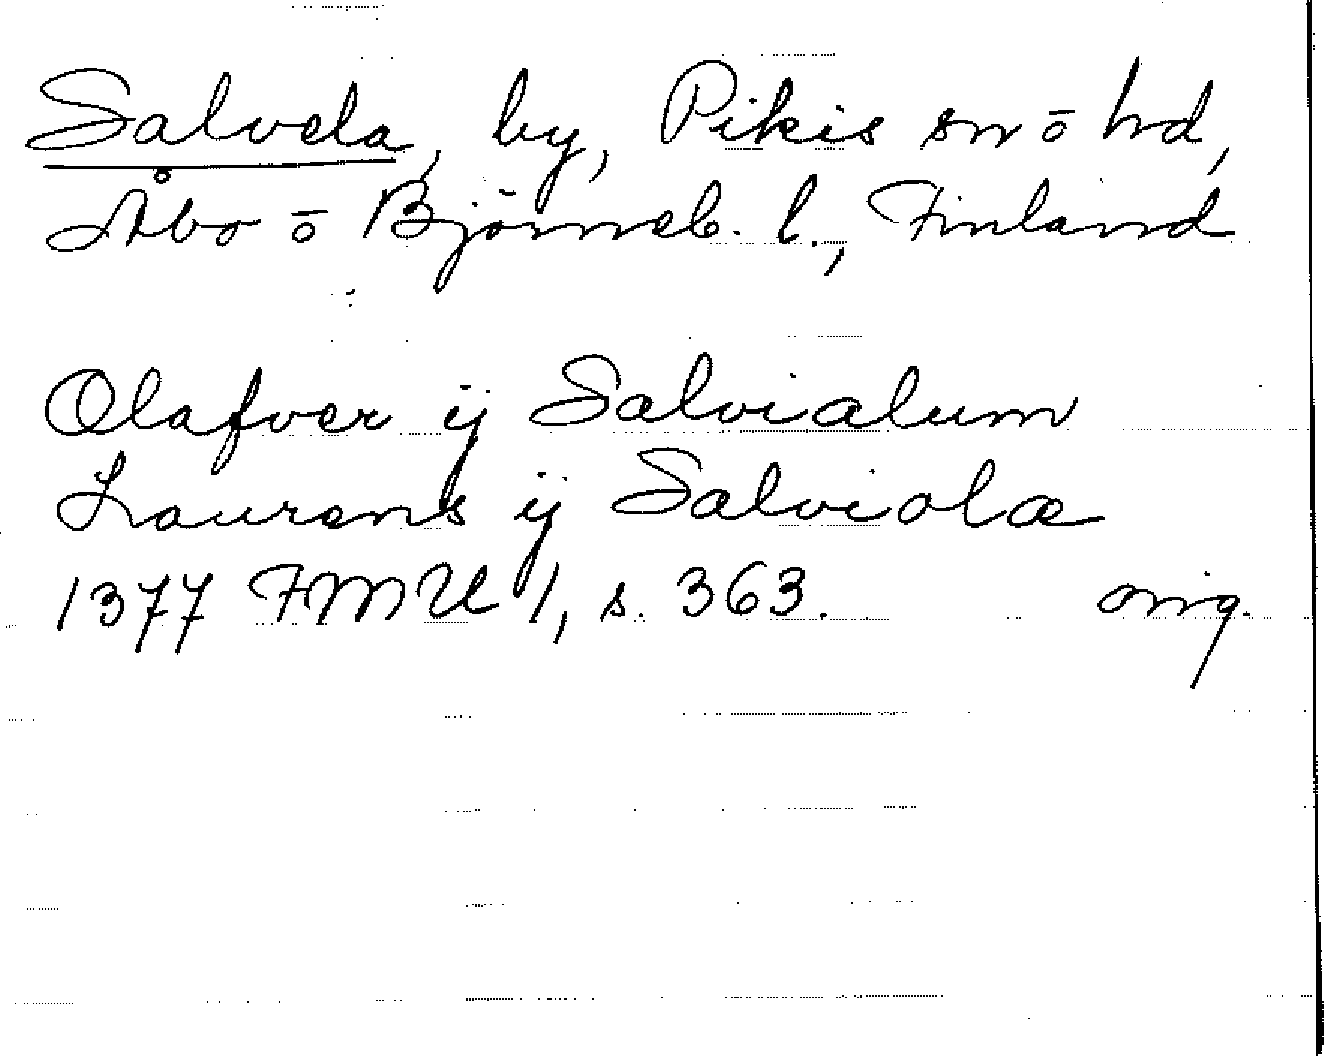 Salvela, by, Pikis sn ō hd,
Åbo ō Björneb. l., Finland
Olafver ij Salvialum
Laurens ij Salviala
1377 FMU 1, s. 363. orig.